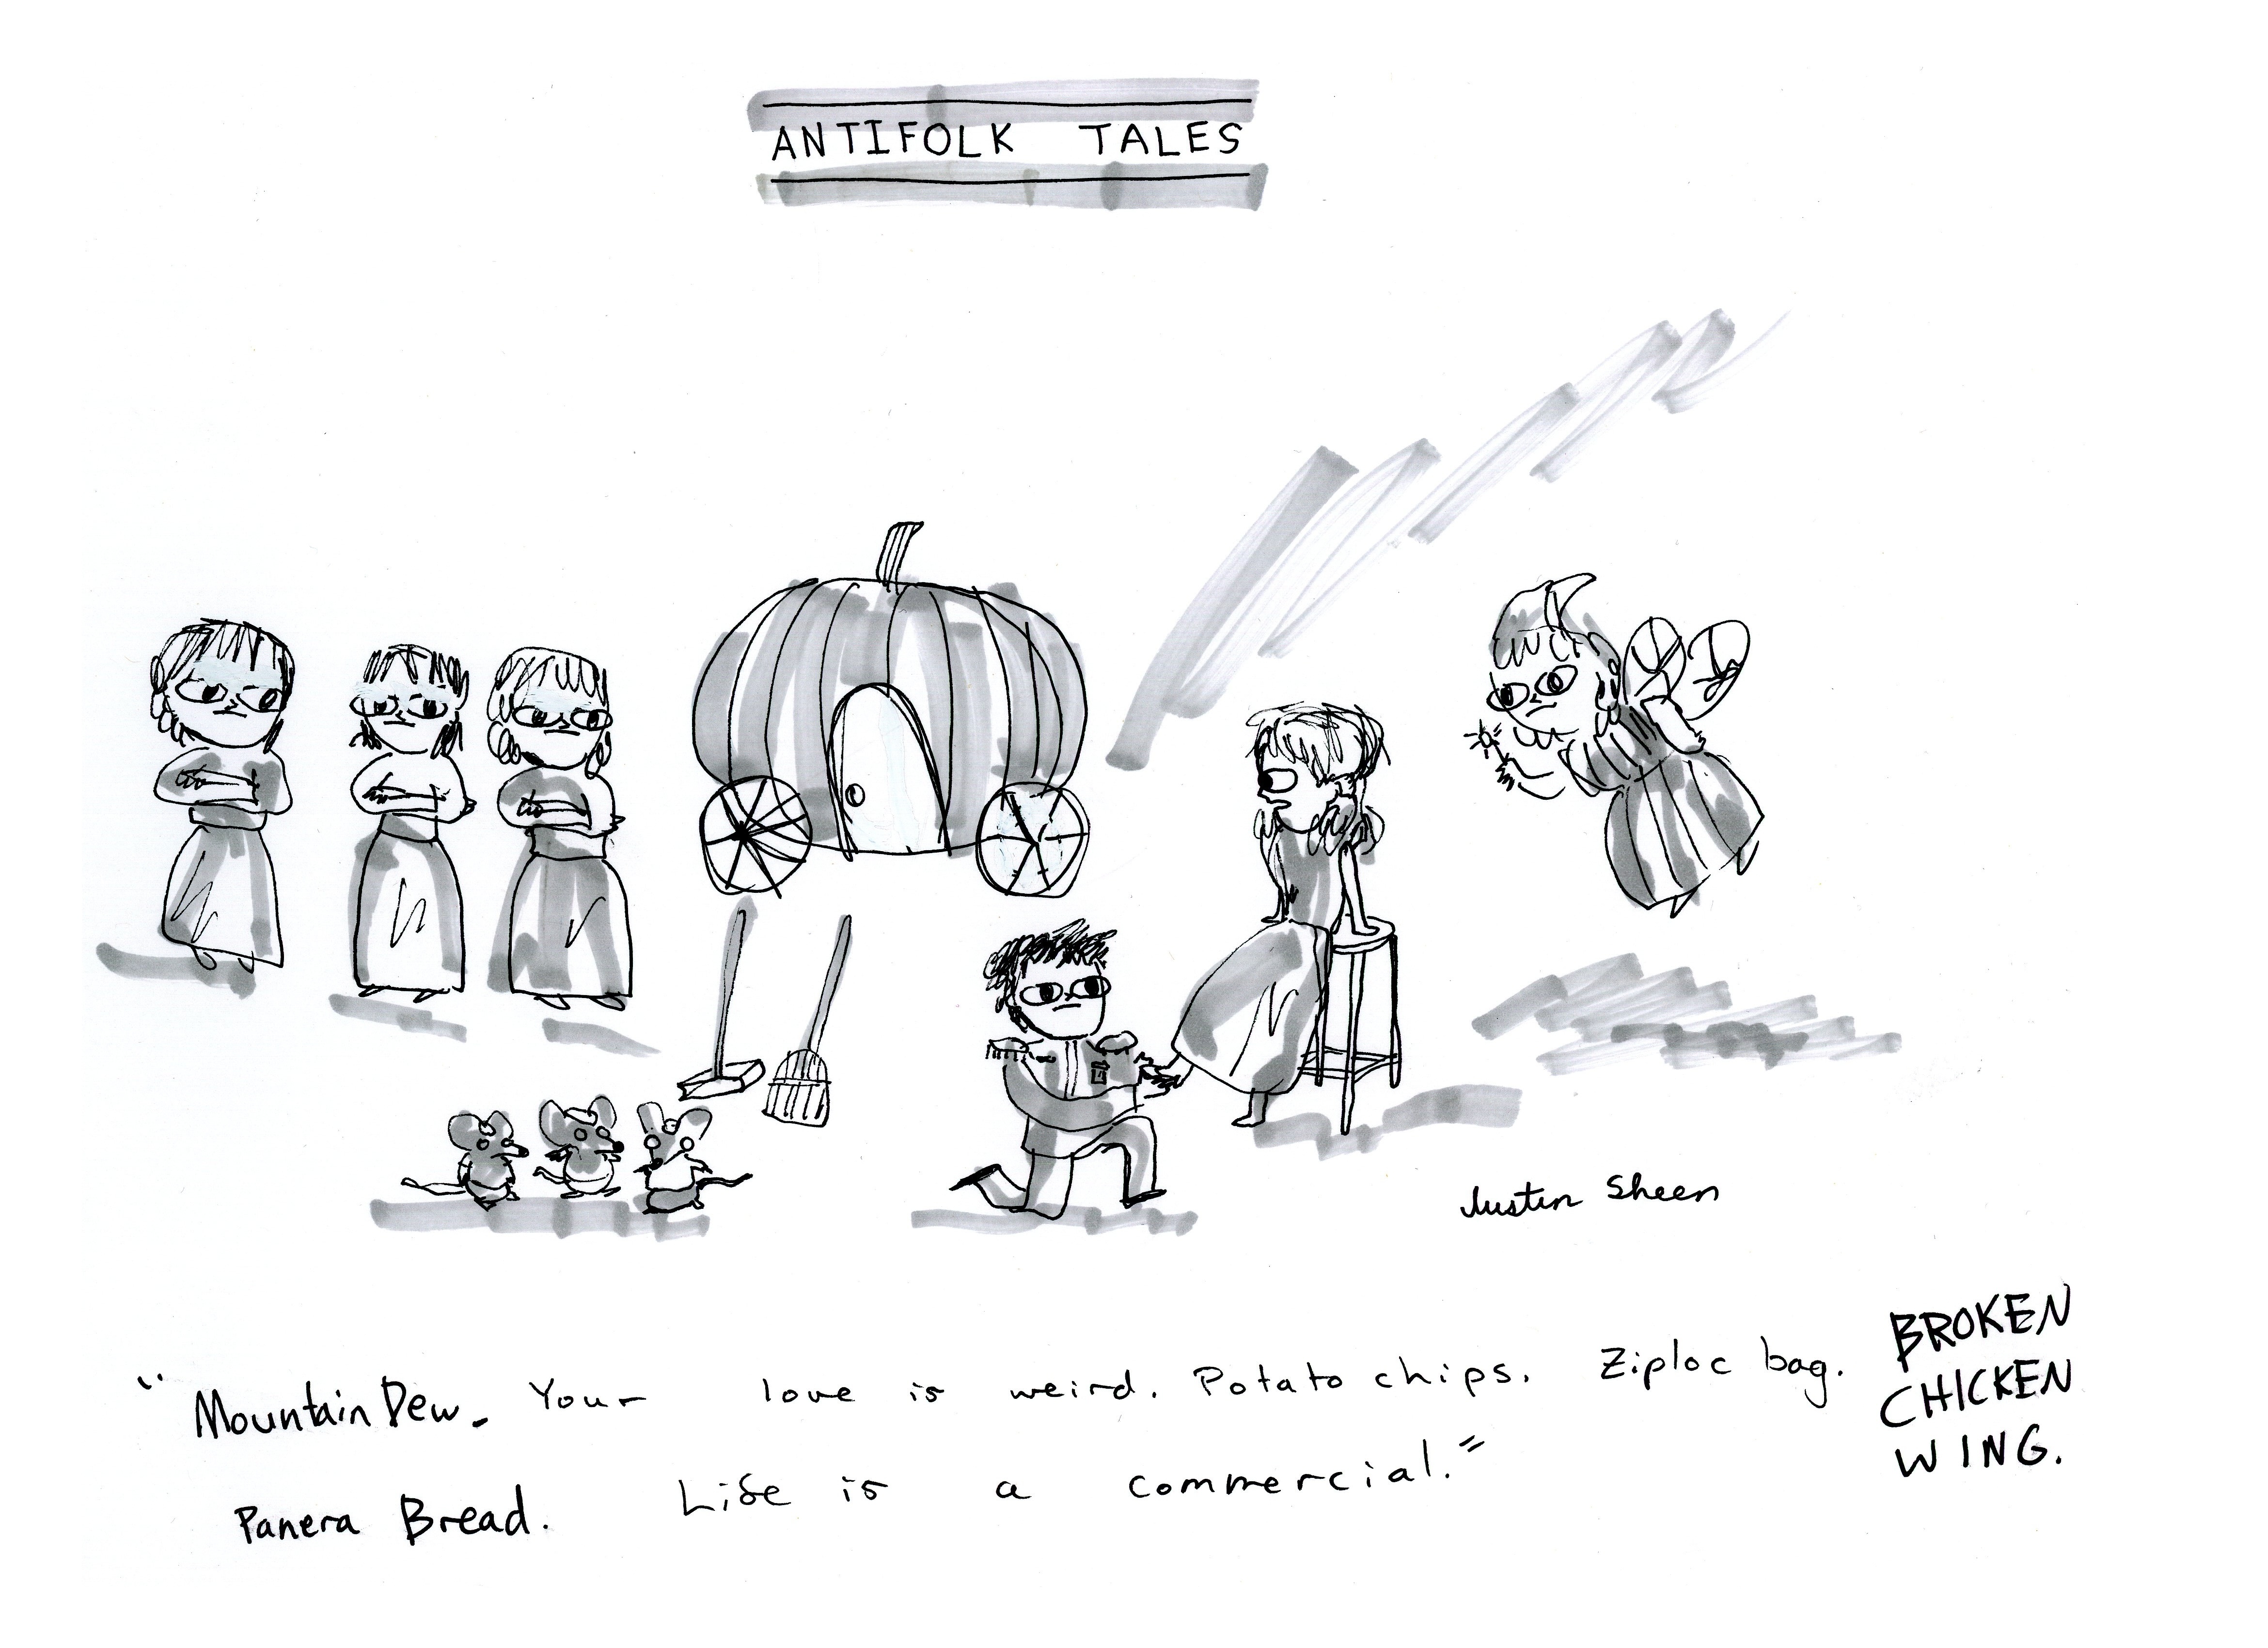 ANTIFOLK TALES
Justin Sheen
"Mountain Dew. Your love is weird. Potato chips. Ziploc bag. BROKEN
CHICKEN
WING.
Panera Bread. Life is a commercial."